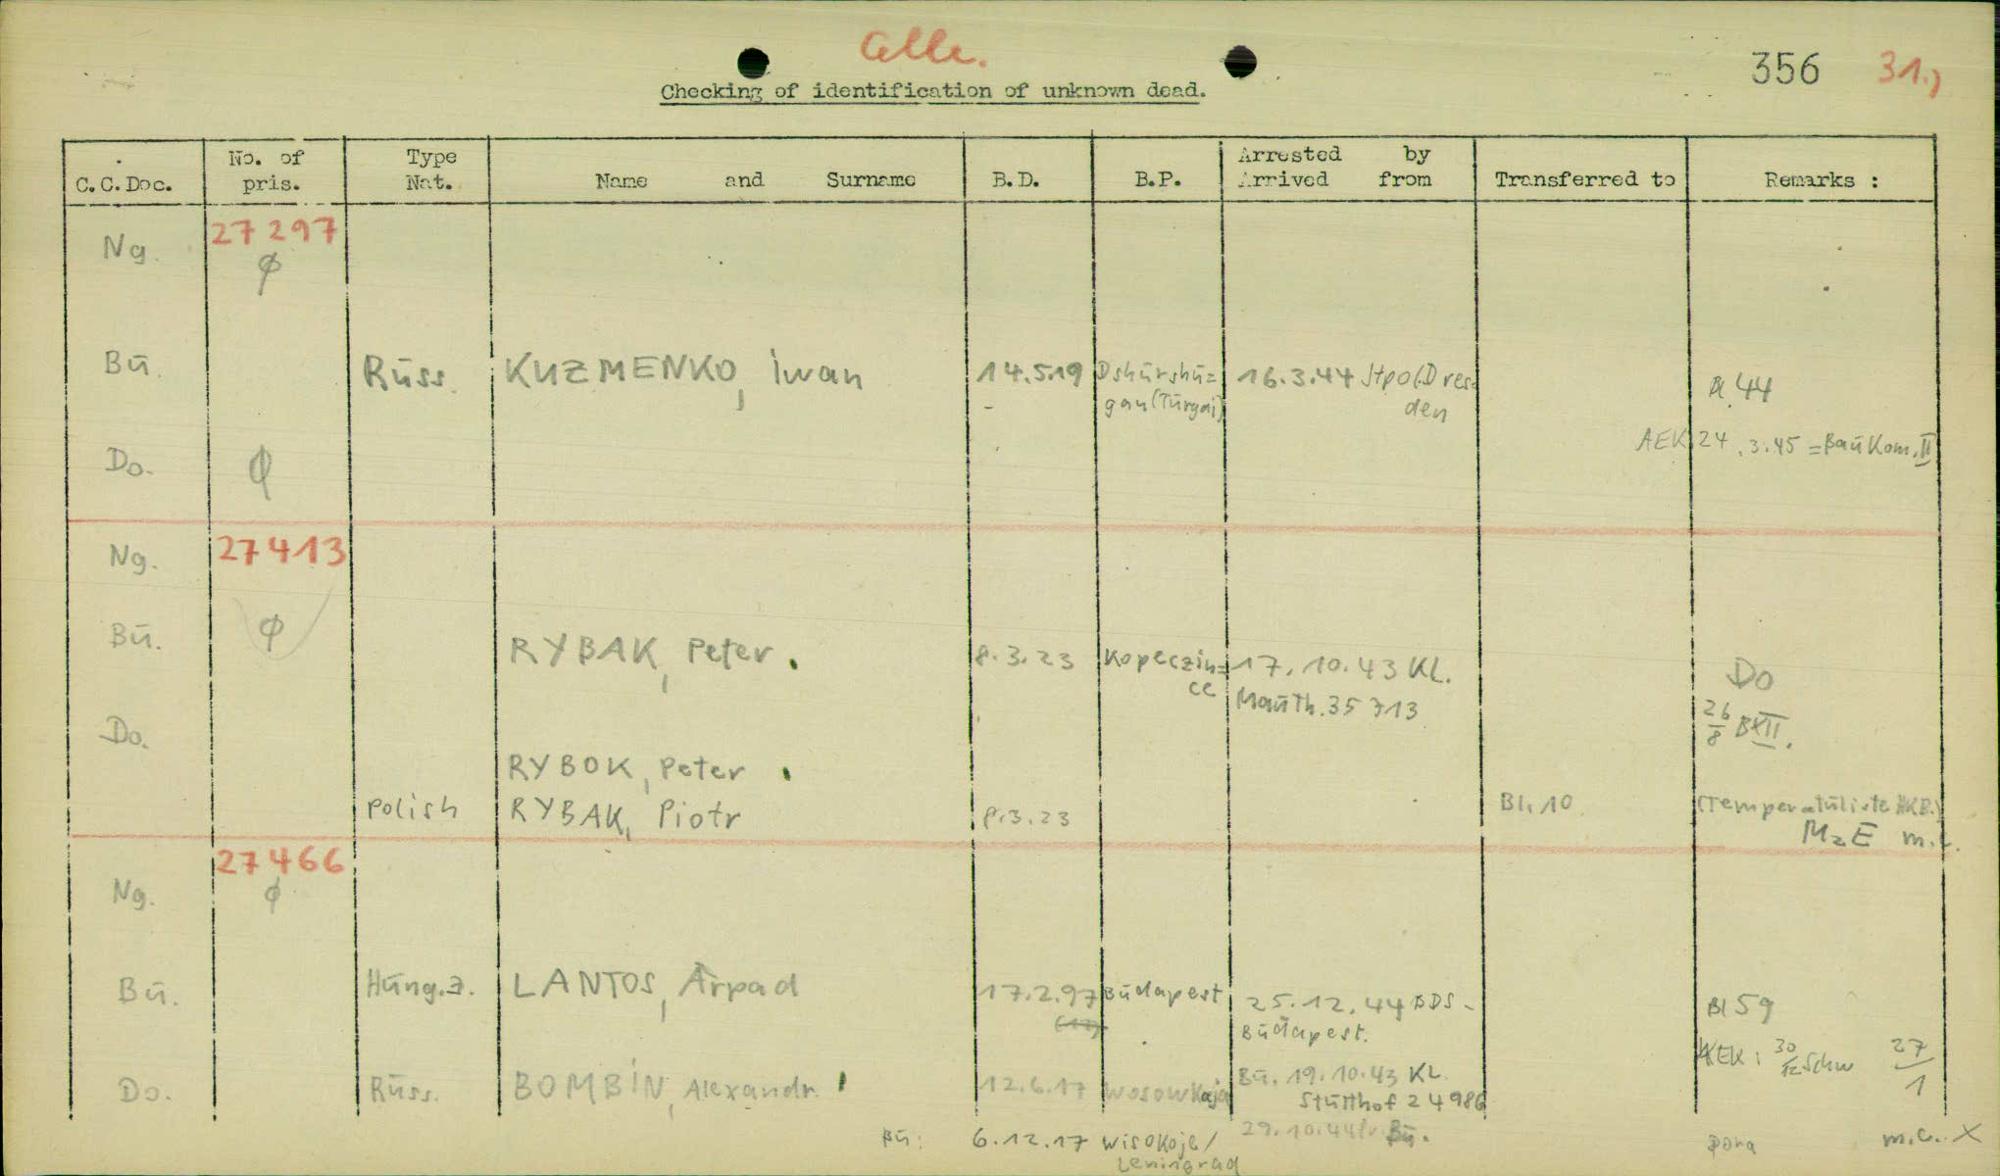 Celle.
356 31.)
Checking of identification of unknown dead.
C.C.Doc. No. of pris. Type Nat. Name and Surname B.D. B.P. Arrested by Arrived from Transferred to Remarks :
Ng. 27297
ø
Bū. Rūss. KUZMENKO, iwan 14.5.19 Dshūrshū= 16.3.44 Stpol.Dres-
gau(Tūrgai) den Bl. 44
AEK 24.3.45 = Baū Kom. II
Do. ø
Ng. 27413
Bū. ø RYBAK, Peter. 8.3.23 Kopeczin= 17.10.43 KL.
ce Maūth. 35713 Do
26/8 BXII.
Do.
RYBOK, Peter
Polish RYBAK, Piotr 8.3.23 Bl. 10 (Temperatūrliste HKB.)
MzE m.c.
27466
Ng. ø
Bū. Hūng.J. LANTOS, Arpad 17.2.97 Būdapest 25.12.44 BDS-
Būdapest. Bl 59
AEK: 30/12 Schw 27/1
Do. Rūss. BOMBIN, Alexandr. 12.6.17 Wosowkaja Bū. 19.10.43 KL
Stūtthof 24986
Bū: 6.12.17 Wisokoje/ 29.10.44 Bū. Dora m.c. X
Leningrad